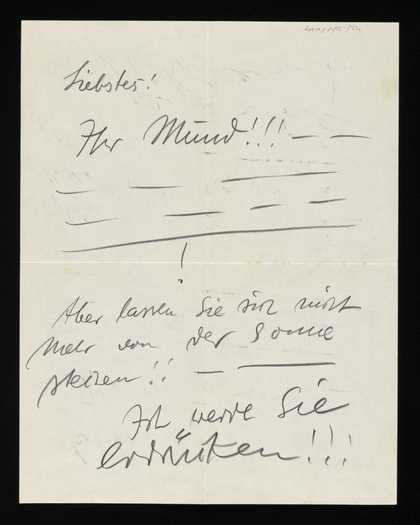 Liebstes!
Ihr Mund!!! — —
— — —
— — — —
—
!
Aber lassen Sie sich nicht
mehr von der Sonne
!! — —
Ich werde Sie
erdrücken!!!